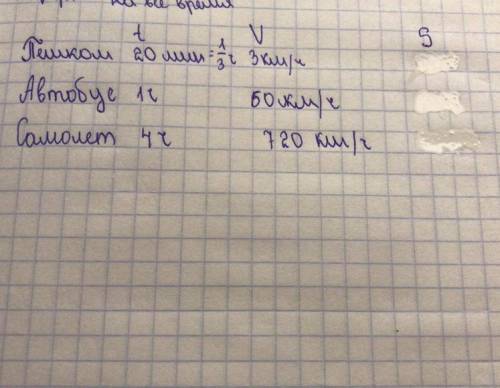 на все время
t V S
Пешком 20 мин = 1/3 ч 3 км/ч
Автобус 1ч 60 км/ч
Самолет 4ч 720 км/ч